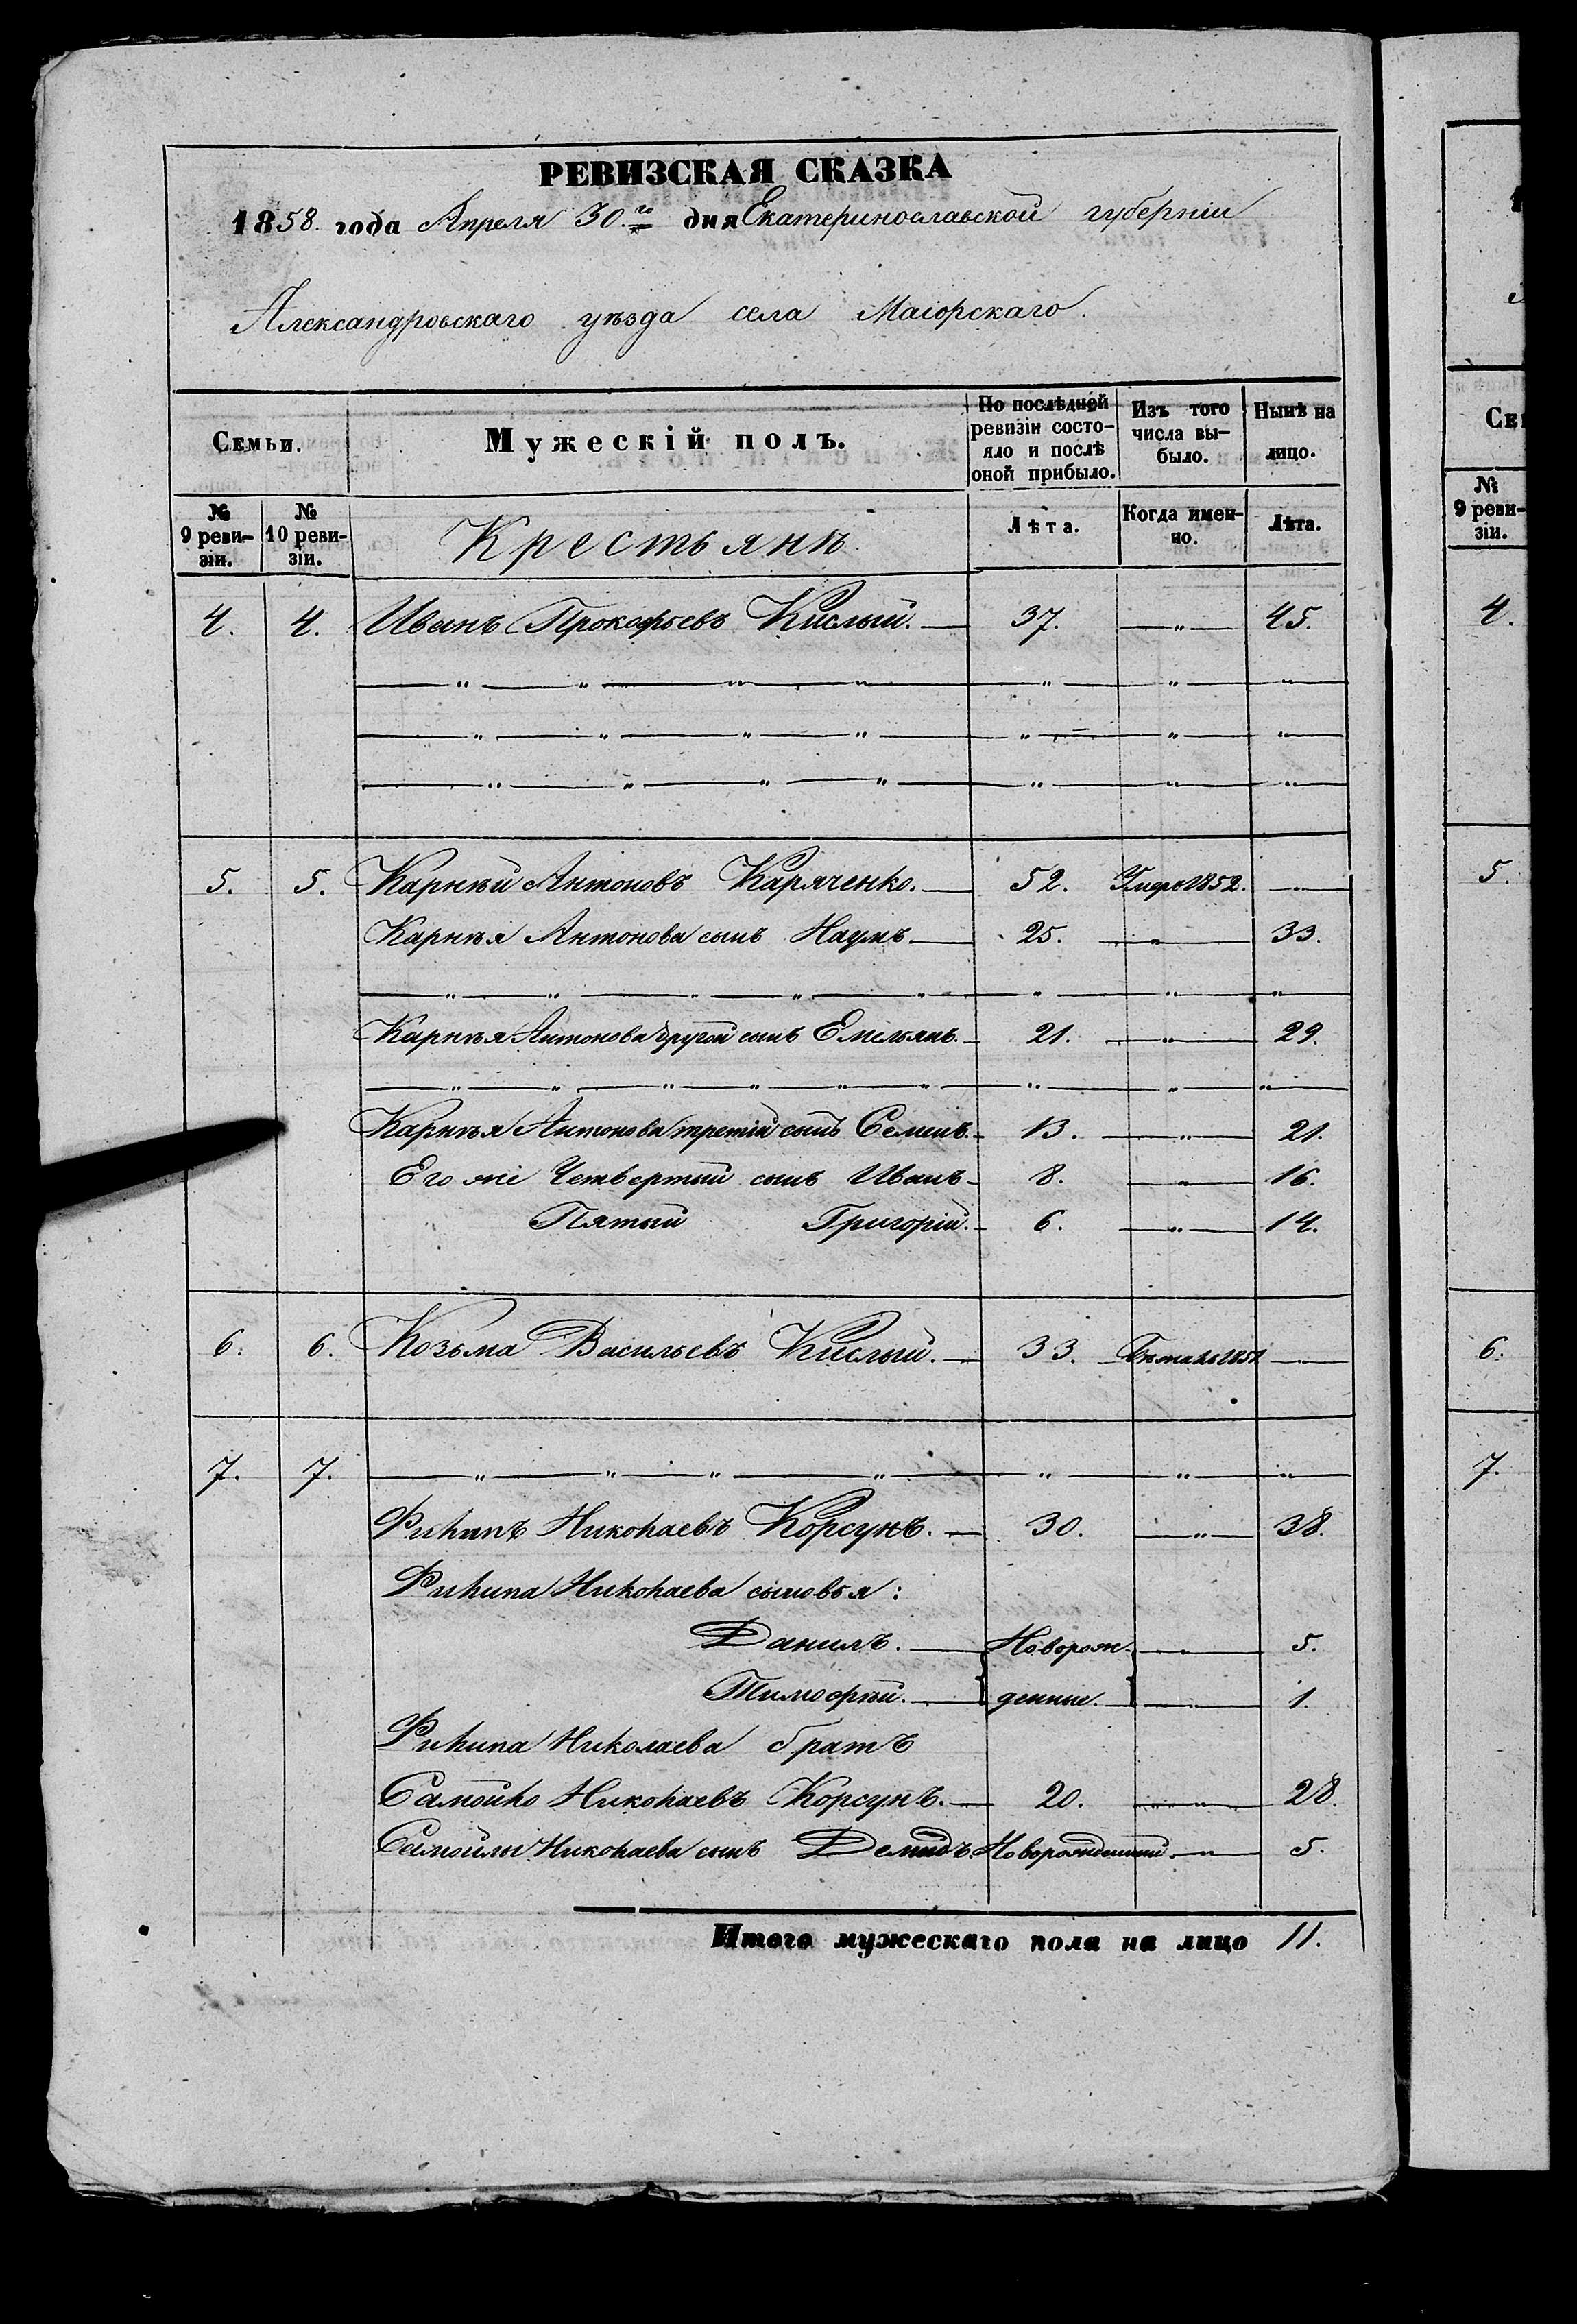 РЕВИЗСКАЯ СКАЗКА
1858. года Апреля 30.го дня Екатеринославской губерніи
Александровскаго уѣзда села Маіорскаго.
Семьи. Мужескій полъ. По послѣдней ревизіи состояло и послѣ оной прибыло. Изъ того числа выбыло. Нынѣ на лицо.
№ 9 ревизіи. № 10 ревизіи. Крестьянѣ Лѣта. Когда именно. Лѣта.
4. 4. Иванъ Прокофьевъ Кислый. — 37. — " — 45.
5. 5. Карнѣй Антоновъ Каряченко. — 52. Умеръ 1852. —
Карнѣя Антонова сынъ Наумъ — 25. — " — 33.
Карнѣя Антонова другой сынъ Емельянъ. — 21. — " — 29.
Карнѣя Антонова третій сынъ Семенъ. — 13. — " — 21.
Его же Четвертый сынъ Иванъ — 8. — " — 16.
Пятый Григорій. — 6. — " — 14.
6. 6. Козьма Васильевъ Кислый. — 33. —
7. 7. — " — " — " — " — " — " — " —
Филипъ Николаевъ Корсунъ. — 30. — " — 38.
Филипа Николаева сыновья:
Данилъ. — Новорож- — " — 5.
Тимофѣй. — денные. — 1.
Филипа Николаева братъ
Самойло Николаевъ Корсунъ. — 20. — " — 28.
Самойлы Николаева сынъ Демидъ. Новорожденный — " — 5.
Итого мужескаго пола на лицо 11.
№ 9 ревизіи.
4.
5.
6.
7.